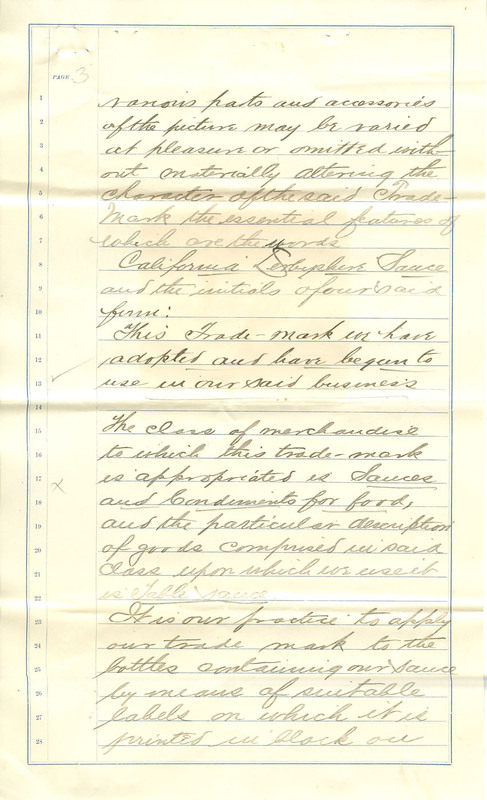 PAGE 3
1 various parts and accessories
2 of the picture may be varied
3 at pleasure or omitted with-
4 out materially altering the
5 character of the said Trade-
6 Mark the essential features of
7 which are the words
8 California Derbyshire Sauce
9 and the initials of our said
10 firm:
11 This Trade-mark we have
12 adopted and have begun to
13 use in our said business
14
15 The class of merchandise
16 to which this trade-mark
17 is appropriated is Sauces
18 and Condiments for food,
19 and the particular description
20 of goods comprised in said
21 class upon which we use it
22 is Table sauce
23 It is our practice to apply
24 our trade mark to the
25 bottles containing our sauce
26 by means of suitable
27 labels on which it is
28 printed in black on